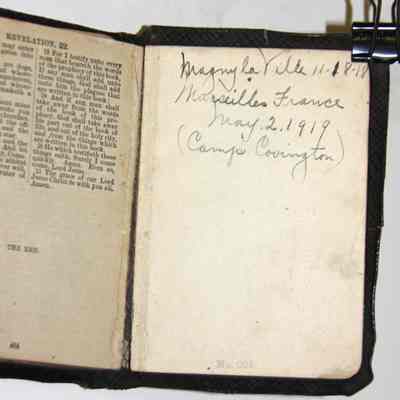 REVELATION, 22.
18 For I testify unto every
man that heareth the words
of the prophecy of this book,
If any man shall add unto
these things, God shall add
unto him the plagues that
are written in this book:
19 And if any man shall
take away from the words
of the book of this
prophecy, God shall take
away his part out of the book
of life, and out of the holy city,
and from the things which
are written in this book.
20 He which testifieth these
things saith, Surely I come
quickly. Amen. Even so,
come, Lord Jesus.
21 The grace of our Lord
Jesus Christ be with you all.
Amen.
THE END.
Magny la Ville 11-18-18
Marseilles France
May. 2, 1919
(Camp Covington)